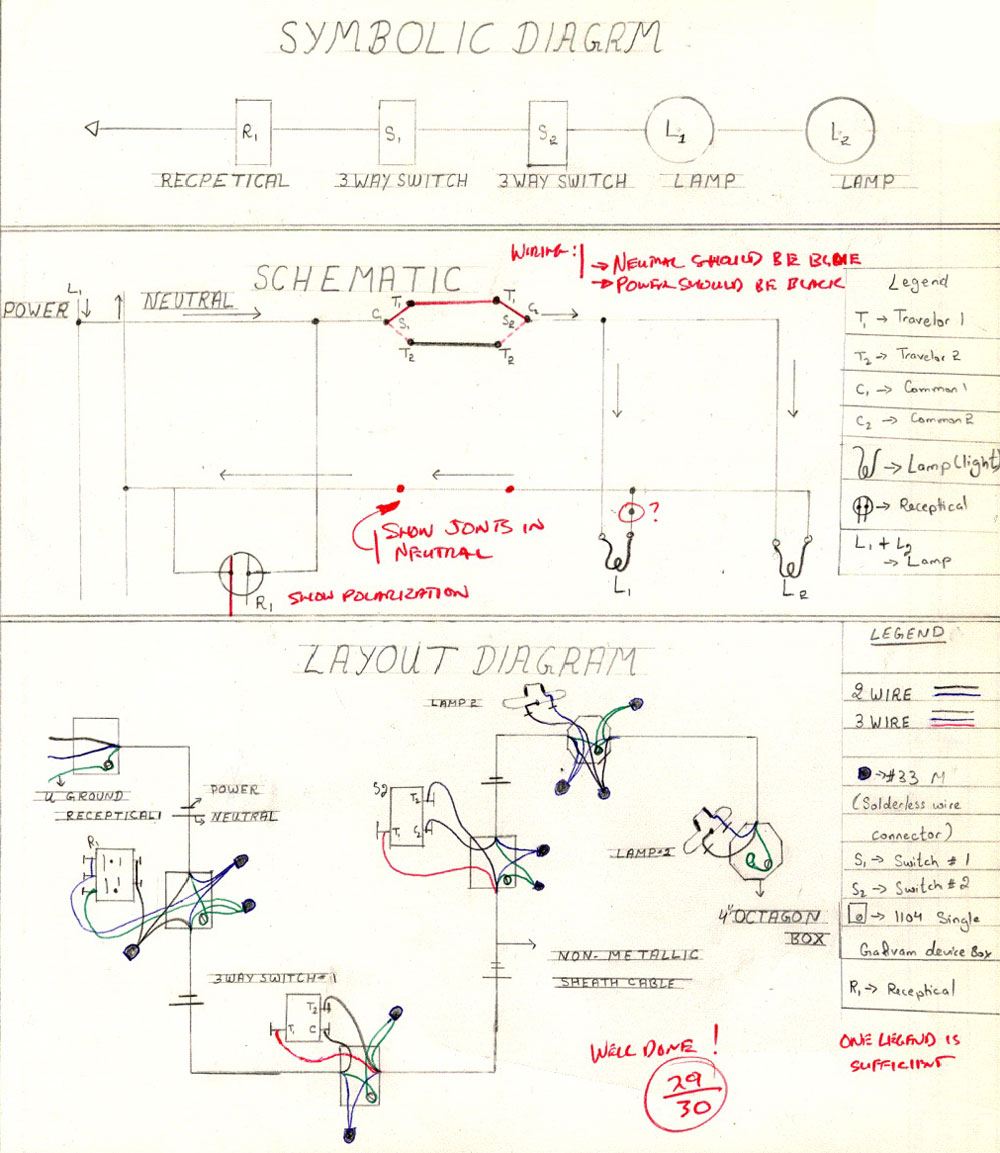 SYMBOLIC DIAGRM
R1
S1
S2
L1
L2
RECPETICAL
3 WAY SWITCH
3 WAY SWITCH
LAMP
LAMP
WIRING:
→ NEUTRAL SHOULD BE BLUE
→ POWER SHOULD BE BLACK
SCHEMATIC
L1
POWER
NEUTRAL
T1
T1
C1
S1
S2
C2
T2
T2
SHOW JONTS IN
NEUTRAL
?
R1
SHOW POLARIZATION
L1
L2
Legend
T1 → Travelor 1
T2 → Travelor 2
C1 → Common 1
C2 → Common 2
→ Lamp (light)
→ Receptical
L1 + L2
→ Lamp
LAYOUT DIAGRAM
LAMP 2
U GROUND
RECEPTICAL 1
POWER
NEUTRAL
R1
S2
T2
T1
C2
LAMP=2
4" OCTAGON
BOX
NON-METALLIC
SHEATH CABLE
3 WAY SWITCH=1
T2
T1
C
WELL DONE!
29
30
LEGEND
2 WIRE
3 WIRE
→ #33 M
(Solderless wire
connector)
S1 → Switch #1
S2 → Switch #2
→ 1104 Single
device Box
R1 → Receptical
ONE LEGEND IS
SUFFICIENT